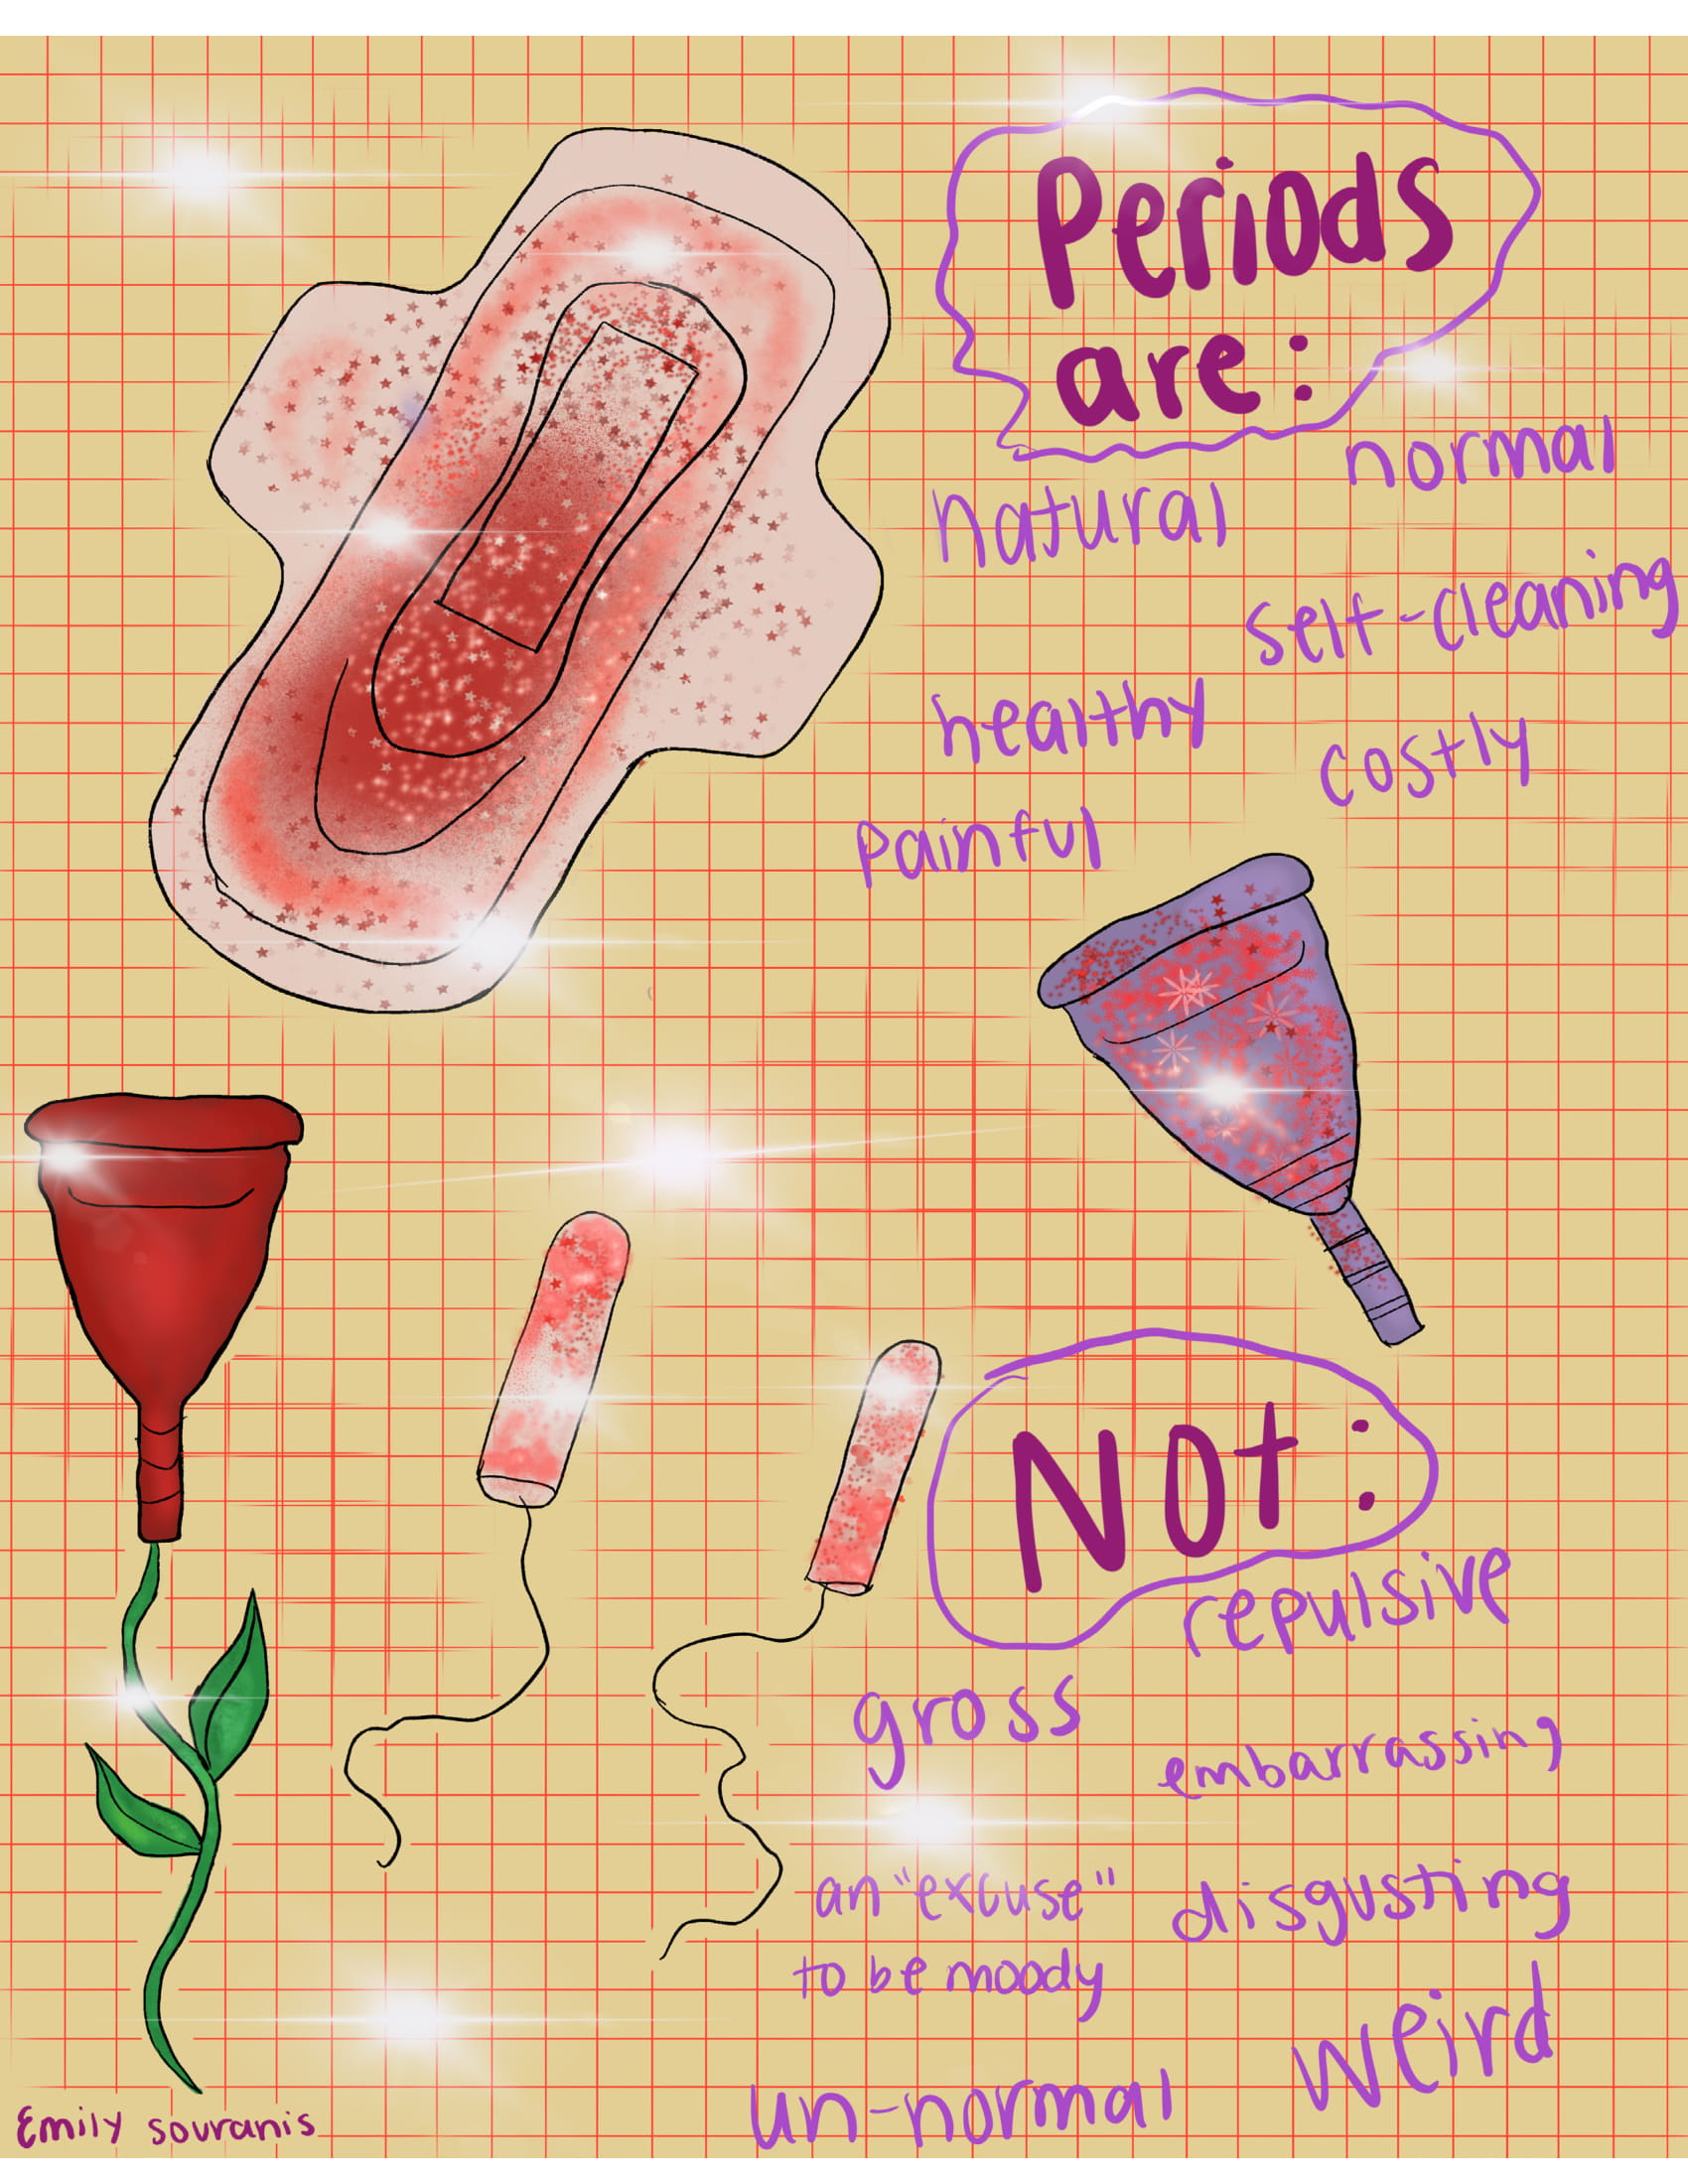 Periods
are:
normal
natural
self-cleaning
healthy
costly
painful
Not:
repulsive
gross
embarrassing
an "excuse"
to be moody
disgusting
weird
un-normal
Emily souranis